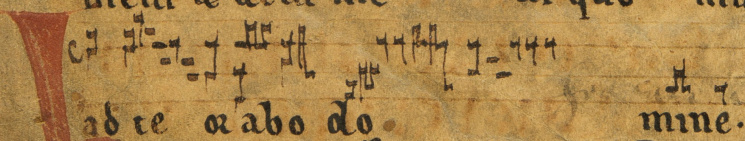 ad te orabo do mine.